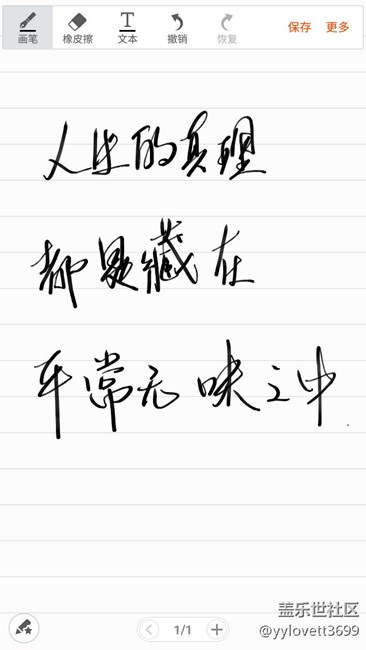 画笔 橡皮擦 文本 撤销 恢复 保存 更多
人生的真理
都是藏在
平常无味之中
1/1
盖乐世社区
@yylovett3699